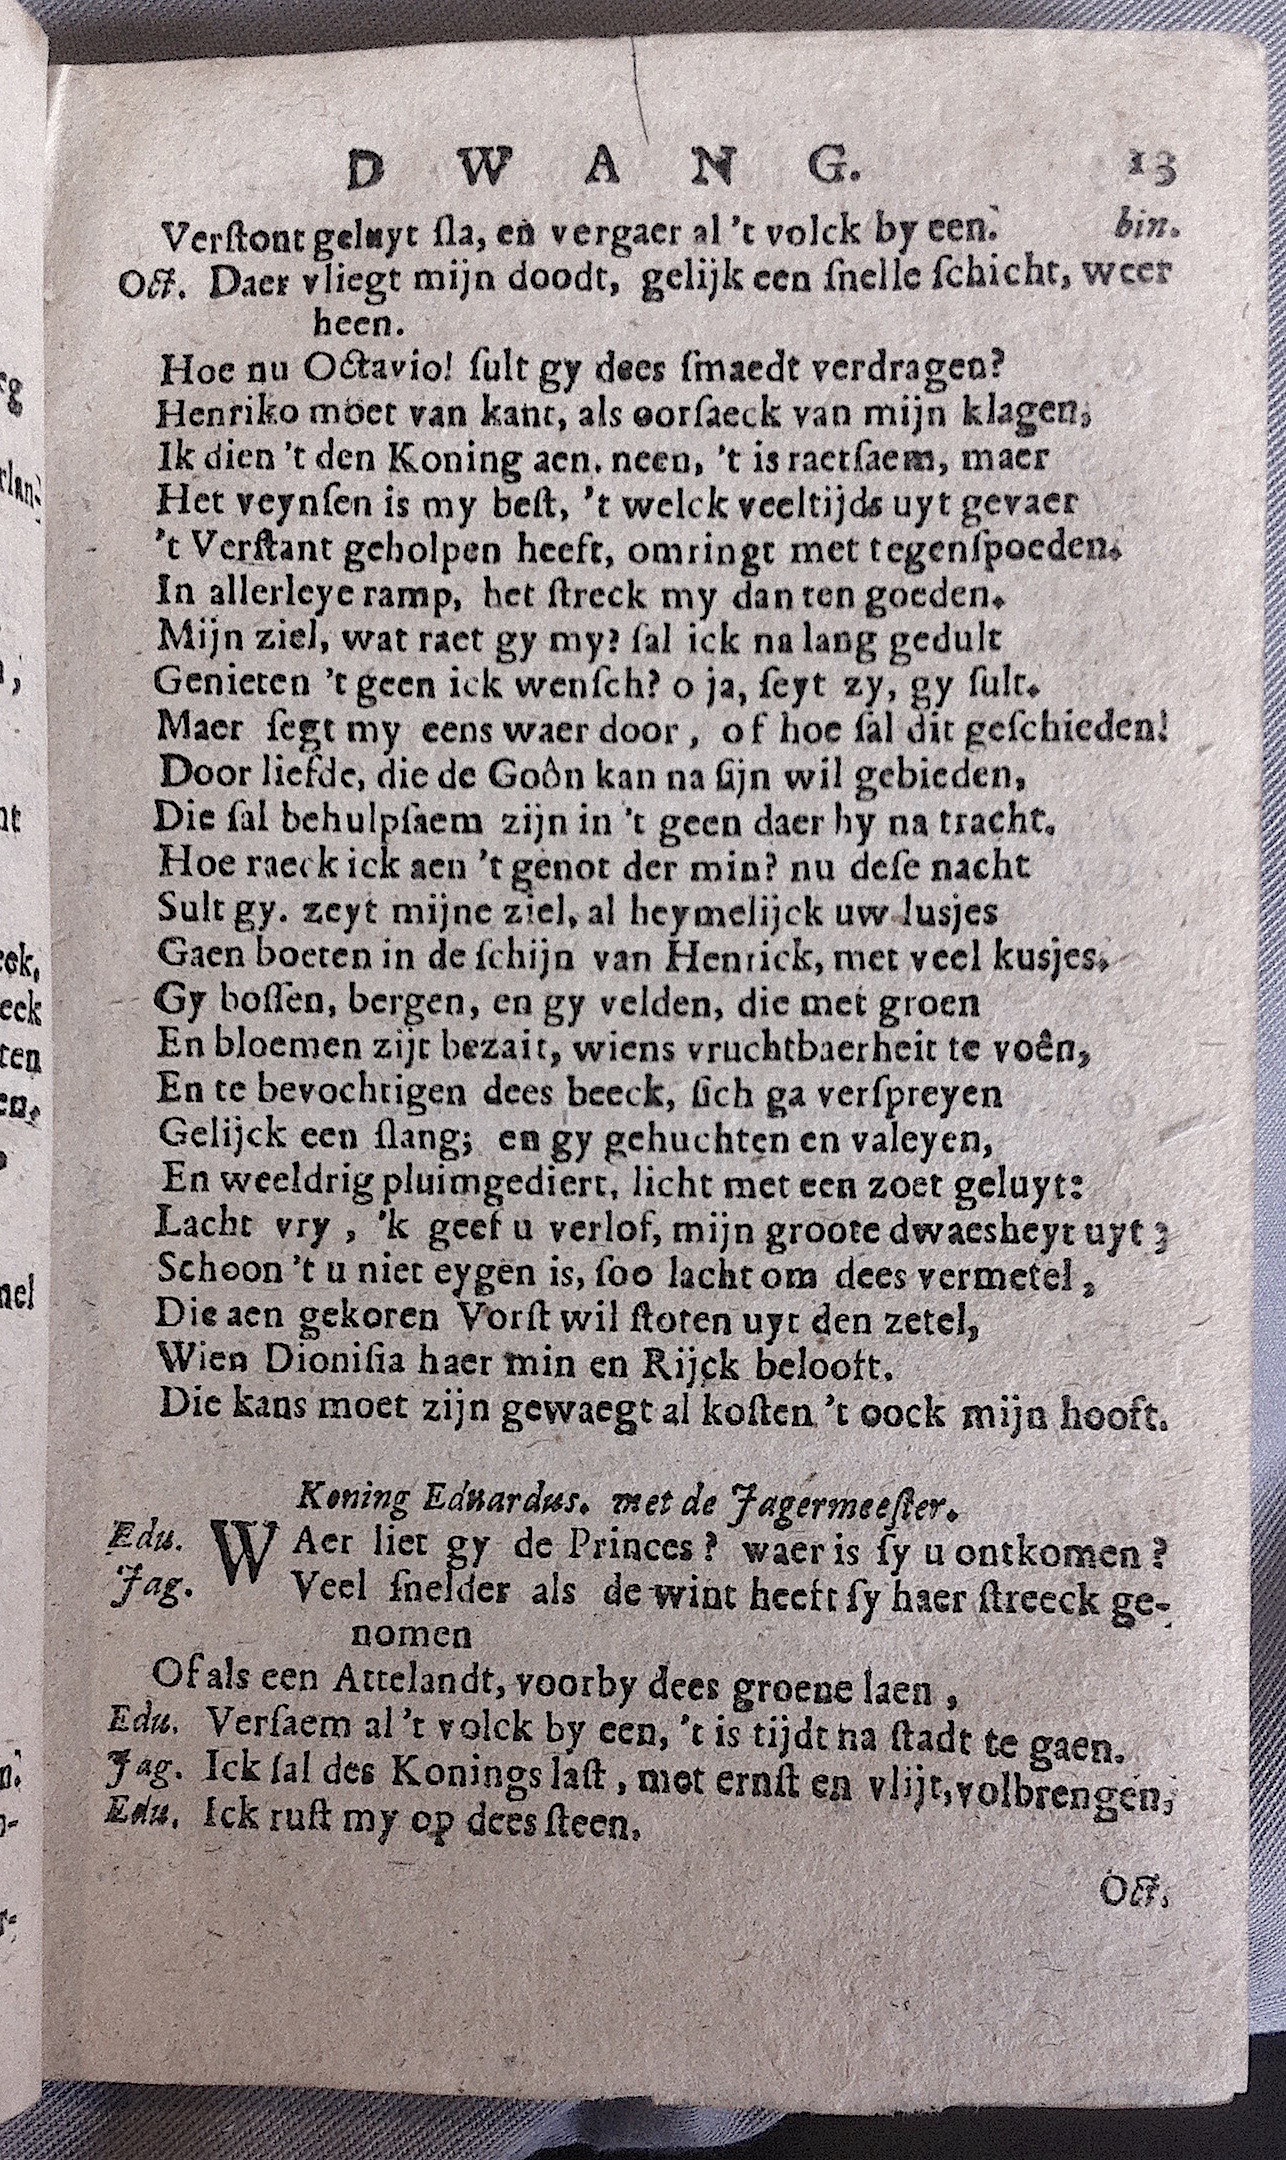 D W A N G. 13
Verſtont geluyt ſla, en vergaer al 't volck by een. bin.
Oct. Daer vliegt mijn doodt, gelijk een ſnelle ſchicht, weer
heen.
Hoe nu Octavio! ſult gy dees ſmaedt verdragen?
Henriko moet van kant, als oorſaeck van mijn klagen,
Ik dien 't den Koning aen. neen, 't is raetſaem, maer
Het veynſen is my beſt, 't welck veeltijds uyt gevaer
't Verſtant geholpen heeft, omringt met tegenſpoeden.
In allerleye ramp, het ſtreck my dan ten goeden.
Mijn ziel, wat raet gy my? ſal ick na lang gedult
Genieten 't geen ick wenſch? o ja, ſeyt zy, gy ſult.
Maer ſegt my eens waer door, of hoe ſal dit geſchieden!
Door liefde, die de Goôn kan na ſijn wil gebieden,
Die ſal behulpſaem zijn in 't geen daer hy na tracht.
Hoe raeck ick aen 't genot der min? nu deſe nacht
Sult gy. zeyt mijne ziel, al heymelijck uw lusjes
Gaen boeten in de ſchijn van Henrick, met veel kusjes.
Gy boſſen, bergen, en gy velden, die met groen
En bloemen zijt bezait, wiens vruchtbaerheit te voên,
En te bevochtigen dees beeck, ſich ga verſpreyen
Gelijck een ſlang; en gy gehuchten en valeyen,
En weeldrig pluimgediert, licht met een zoet geluyt:
Lacht vry, 'k geef u verlof, mijn groote dwaesheyt uyt;
Schoon 't u niet eygen is, ſoo lacht om dees vermetel,
Die aen gekoren Vorſt wil ſtoten uyt den zetel,
Wien Dioniſia haer min en Rijck belooft.
Die kans moet zijn gewaegt al koſten 't oock mijn hooft.
Koning Eduardus. met de Jagermeeſter.
Edu. WAer liet gy de Princes? waer is ſy u ontkomen?
Jag. Veel ſnelder als de wint heeft ſy haer ſtreeck ge-
nomen
Of als een Attelandt, voorby dees groene laen,
Edu. Verſaem al 't volck by een, 't is tijdt na ſtadt te gaen.
Jag. Ick ſal des Konings laſt, met ernſt en vlijt, volbrengen,
Edu. Ick ruſt my op dees ſteen.
Oct.